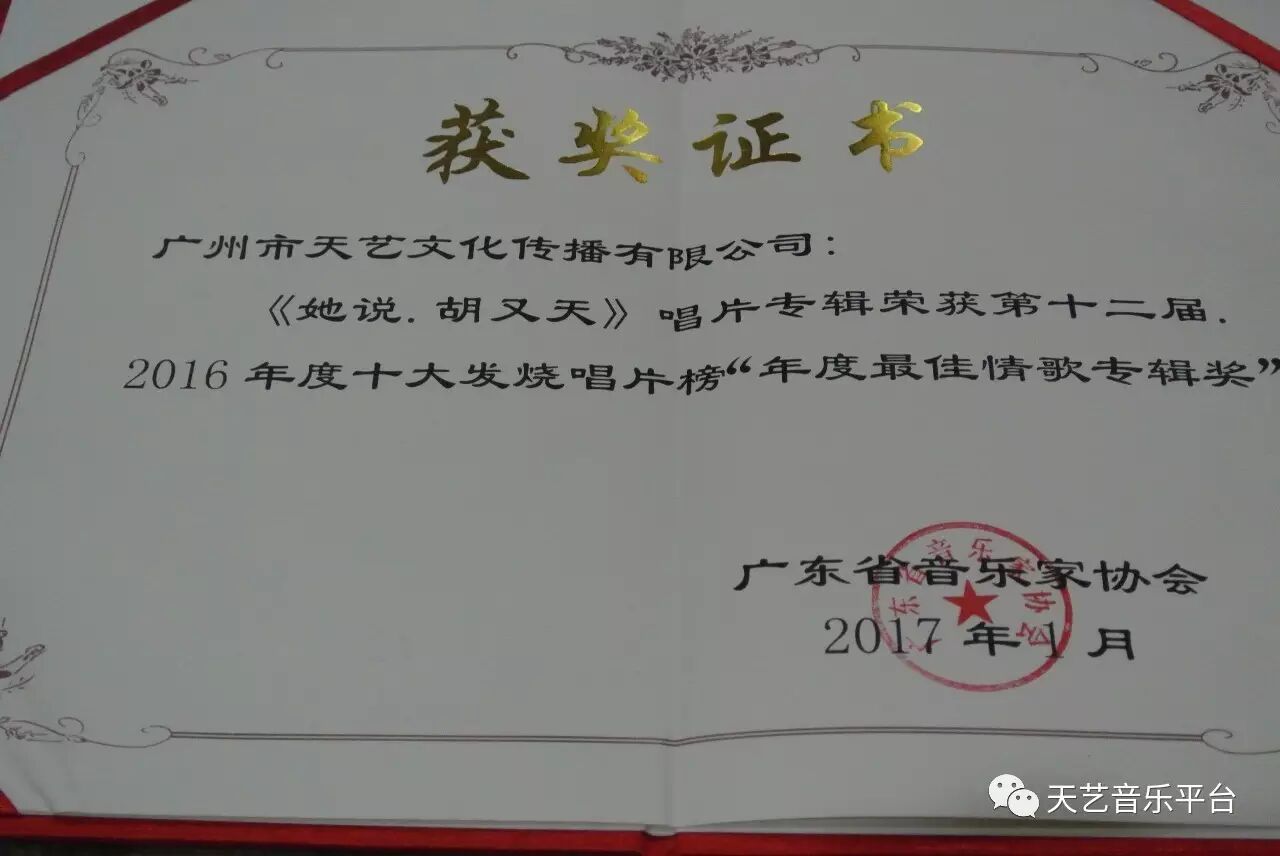 获奖证书
广州市天艺文化传播有限公司：
《她说.胡又天》唱片专辑荣获第十二届.
2016年度十大发烧唱片榜“年度最佳情歌专辑奖”
广东省音乐家协会
2017年1月
天艺音乐平台